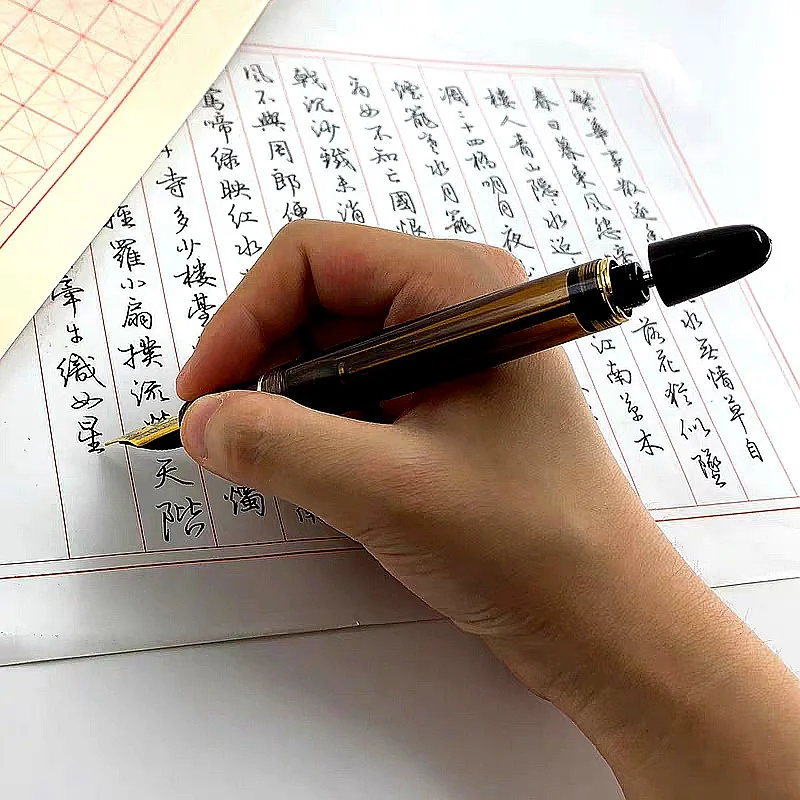 繁華事散逐
水無情草自
春日暮東風怨
落花猶似墜
樓人青山隱隱水迢
江南草木
凋二十四橋明月夜
煙籠寒水月籠
商女不知亡國恨
戟沉沙鐵未消
風不與周郎便
鶯啼綠映紅水
寺多少樓臺
燭
羅小扇撲流
天階
牽牛織女星